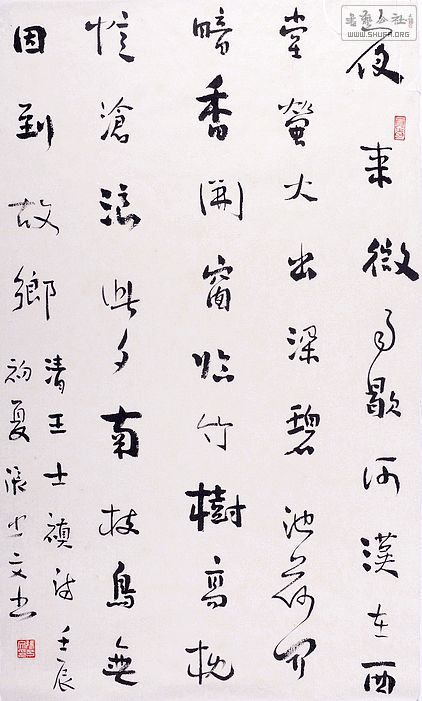 書藝公社
WWW.SHUFA.ORG
夜來微雨歇河漢在西
堂螢火出深碧池荷聞
暗香開窗臨竹樹高枕
憶滄浪此夕南枝鳥無
因到故鄉
清王士禛詩 壬辰
初夏張文书